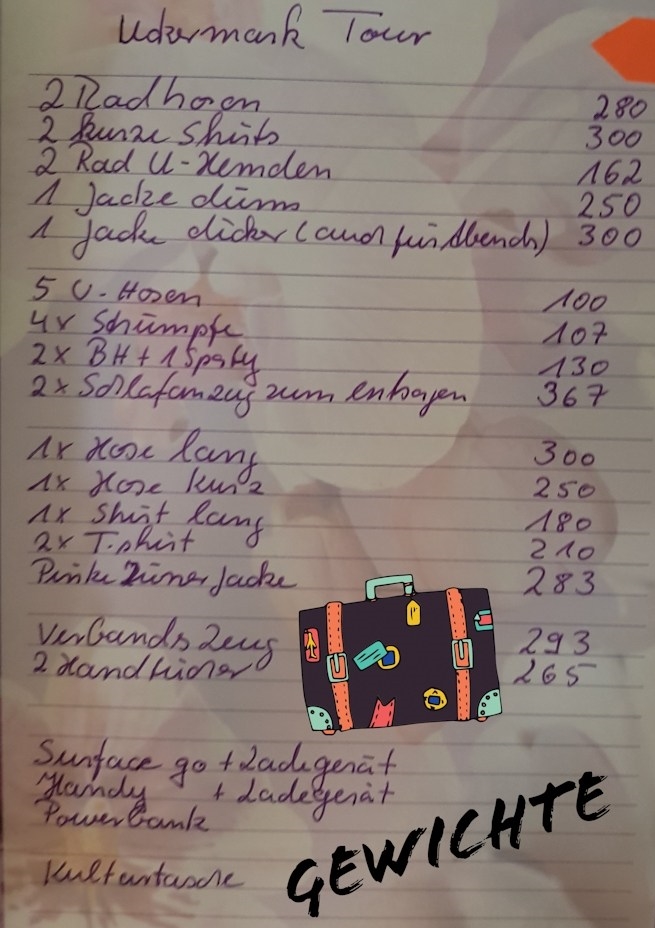 Uckermark Tour
2 Radhosen 280
2 kurze Shirts 300
2 Rad U-Hemden 162
1 Jacke dünn 250
1 Jacke dicker (auch für Abends) 300
5 U-Hosen 100
4x Strümpfe 107
2x BH + 1 Sporty 130
2x Schlafanzug zum 367
1x Hose lang 300
1x Hose kurz 250
1x Shirt lang 180
2x T-shirt 210
Pinke Jacke 283
Verbandszeug 293
2 Handtücher 265
Surface go + Ladegerät
Handy + Ladegerät
Powerbank
Kulturtasche
GEWICHTE